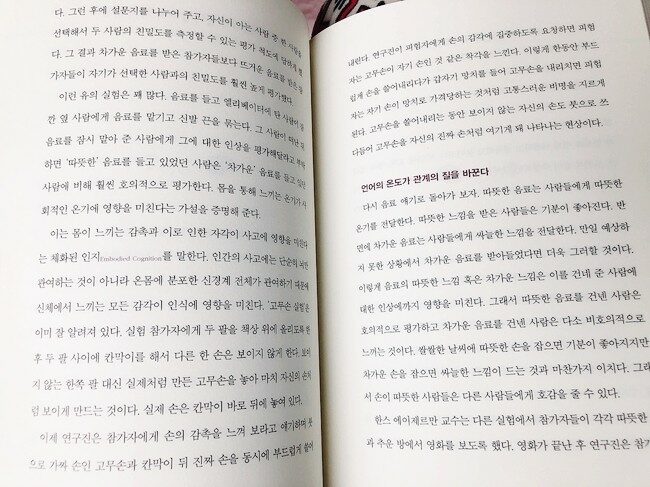 다. 그런 후에 설문지를 나누어 주고, 자신이 아는 사람 중 한 사람을
선택해서 두 사람의 친밀도를 측정할 수 있는 평가 척도에 답하게 했
다. 그 결과 차가운 음료를 받은 참가자들보다 뜨거운 음료를 받은 참
가자들이 자기가 선택한 사람과의 친밀도를 훨씬 높게 평가했다.
이런 유의 실험은 꽤 많다. 음료를 들고 엘리베이터에 탄 사람이 잠
깐 옆 사람에게 음료를 맡기고 신발 끈을 묶는다. 그 사람이 떠난
음료를 잠시 맡아 준 사람에게 그에 대한 인상을 평가해달라고 부탁
하면 '따뜻한' 음료를 들고 있었던 사람은 '차가운' 음료를 들고 있던
사람에 비해 훨씬 호의적으로 평가한다. 몸을 통해 느끼는 온기가 사
회적인 온기에 영향을 미친다는 가설을 증명해 준다.
이는 몸이 느끼는 감촉과 이로 인한 자각이 사고에 영향을 미친다
는 체화된 인지Embodied Cognition를 말한다. 인간의 사고에는 단순히 뇌만
관여하는 것이 아니라 온몸에 분포한 신경계 전체가 관여하기 때문에
신체에서 느끼는 모든 감각이 인식에 영향을 미친다. '고무손 실험'은
이미 잘 알려져 있다. 실험 참가자에게 두 팔을 책상 위에 올리도록 한
후 두 팔 사이에 칸막이를 해서 다른 한 손은 보이지 않게 한다. 보이
지 않는 한쪽 팔 대신 실제처럼 만든 고무손을 놓아 마치 자신의 손처
럼 보이게 만드는 것이다. 실제 손은 칸막이 바로 뒤에 놓여 있다.
이제 연구진은 참가자에게 손의 감촉을 느껴 보라고 얘기하며 붓
으로 가짜 손인 고무손과 칸막이 뒤 진짜 손을 동시에 부드럽게 쓸어
내린다. 연구진이 피험자에게 손의 감각에 집중하도록 요청하면 피험
자는 고무손이 자기 손인 것 같은 착각을 느낀다. 이렇게 한동안 부드
럽게 손을 쓸어내리다가 갑자기 망치를 들어 고무손을 내리치면 피험
자는 자기 손이 망치로 가격당하는 것처럼 고통스러운 비명을 지르게
된다. 고무손을 쓸어내리는 동안 보이지 않는 자신의 손도 붓으로 쓰
다듬어 고무손을 자신의 진짜 손처럼 여기게 돼 나타나는 현상이다.
언어의 온도가 관계의 질을 바꾼다
다시 음료 얘기로 돌아가 보자. 따뜻한 음료는 사람들에게 따뜻한
온기를 전달한다. 따뜻한 느낌을 받은 사람들은 기분이 좋아진다. 반
면에 차가운 음료는 사람들에게 싸늘한 느낌을 전달한다. 만일 예상하
지 못한 상황에서 차가운 음료를 받아들었다면 더욱 그러할 것이다.
이렇게 음료의 따뜻한 느낌 혹은 차가운 느낌은 이를 건네 준 사람에
대한 인상에까지 영향을 미친다. 그래서 따뜻한 음료를 건넨 사람은
호의적으로 평가하고 차가운 음료를 건넨 사람은 다소 비호의적으로
느끼는 것이다. 쌀쌀한 날씨에 따뜻한 손을 잡으면 기분이 좋아지지만
차가운 손을 잡으면 싸늘한 느낌이 드는 것과 마찬가지 이치다. 그래
서 손이 따뜻한 사람들은 다른 사람들에게 호감을 줄 수 있다.
한스 에이제르만 교수는 다른 실험에서 참가자들이 각각 따뜻한
과 추운 방에서 영화를 보도록 했다. 영화가 끝난 후 연구진은 참가